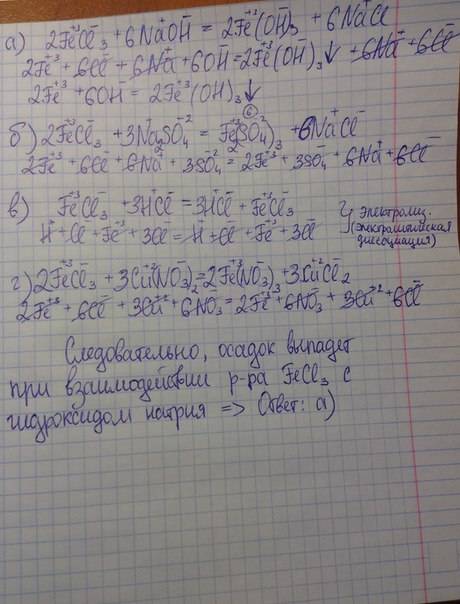 а) 2Fe⁺³Cl⁻₃ + 6Na⁺OH⁻ = 2Fe⁺³(OH)⁻₃ + 6Na⁺Cl⁻
2Fe⁺³ + 6Cl⁻ + 6Na⁺ + 6OH⁻ = 2Fe⁺³(OH)₃↓ + 6Na⁺ + 6Cl⁻
2Fe⁺³ + 6OH⁻ = 2Fe⁺³(OH)₃↓
б) 2Fe⁺³Cl⁻₃ + 3Na⁺₂SO₄⁻² = Fe⁺³₂(SO₄)₃ + 6Na⁺Cl⁻
2Fe⁺³ + 6Cl⁻ + 6Na⁺ + 3SO₄⁻² = 2Fe⁺³ + 3SO₄⁻² + 6Na⁺ + 6Cl⁻
в) Fe⁺³Cl⁻₃ + 3H⁺Cl⁻ = 3H⁺Cl⁻ + Fe⁺³Cl₃
H⁺ + Cl⁻ + Fe⁺³ + 3Cl⁻ = H⁺ + Cl⁻ + Fe⁺³ + 3Cl⁻
электролиз.
(электролитическая
диссоциация)
г) 2Fe⁺³Cl⁻₃ + 3Cu⁺²(NO₃⁻)₂ = 2Fe⁺³(NO₃⁻)₃ + 3Cu⁺²Cl⁻₂
2Fe⁺³ + 6Cl⁻ + 3Cu⁺² + 6NO₃⁻ = 2Fe⁺³ + 6NO₃⁻ + 3Cu⁺² + 6Cl⁻
Следовательно, осадок выпадет
при взаимодействии р-ра FeCl₃ с
гидроксидом натрия => Ответ: а)